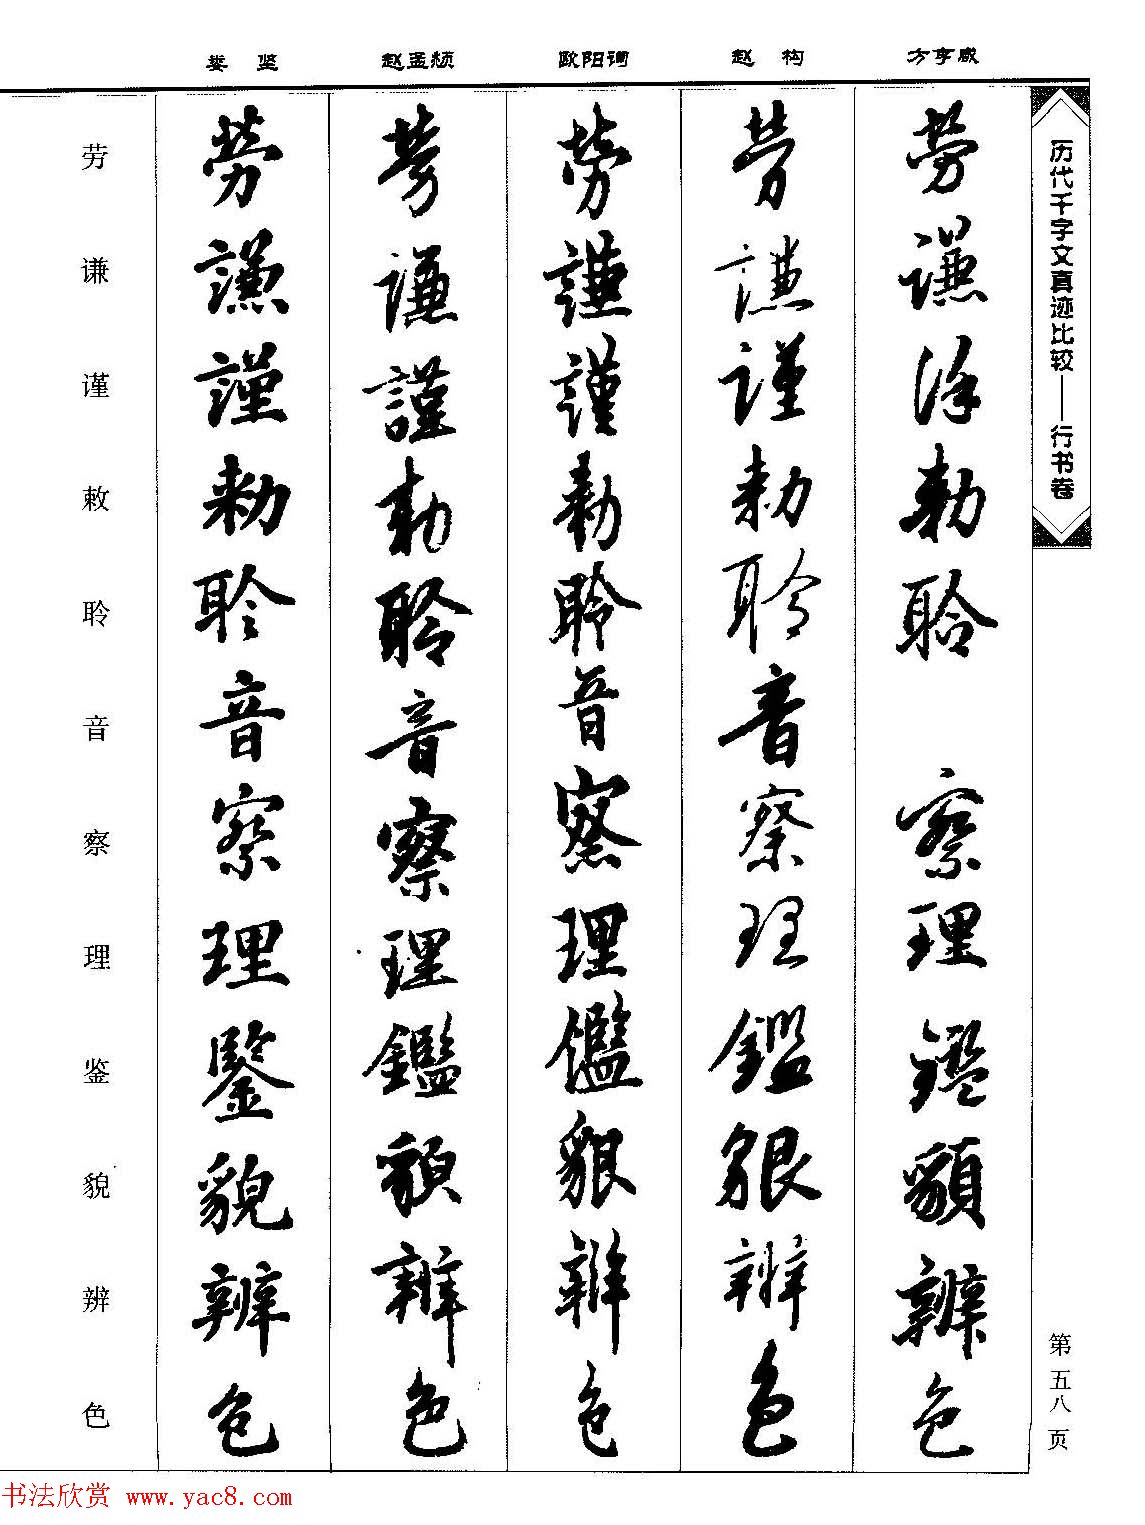 娄坚 赵孟頫 欧阳询 赵构 方亨咸
历代千字文真迹比较——行书卷
劳 勞 勞 勞 勞 勞
谦 謙 謙 謙 謙 謙
谨 謹 謹 謹 謹
敕 勅 勅 勅 勅 勅
聆 聆 聆 聆 聆 聆
音 音 音 音 音
察 察 察 察 察 察
理 理 理 理 理 理
鉴 鑒 鑑 鑑 鑑 鑑
貌 貌
辨 辨 辨 辨 辨 辨
色 色 色 色 色 色
第五八页
书法欣赏 www.yac8.com